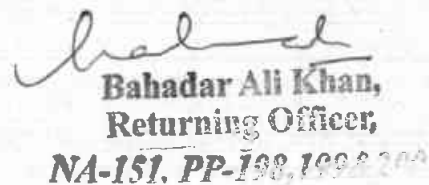 Bahadar Ali Khan,
Returning Officer,
NA-151, PP-198,199& 200